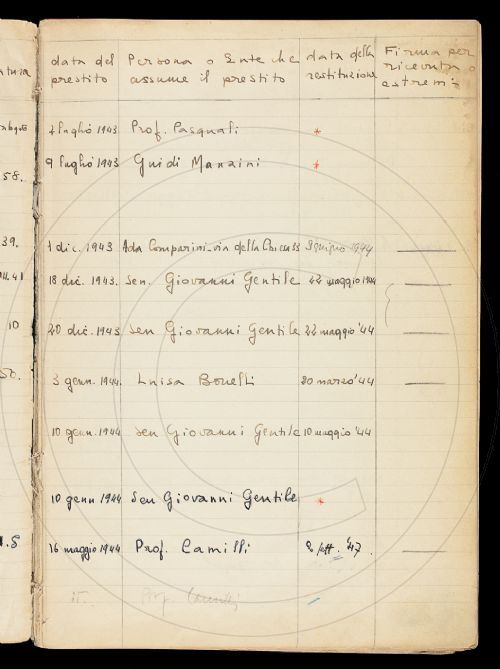 data del prestito Persona o Ente che assume il prestito data della restituzione Firma per ricevuta o estremi
4 luglio 1943 Prof. Pasquali *
9 luglio 1943 Guidi Manzini *
58.
39. 1 dic. 1943 Ada Comparini - via della 1944
18 dic. 1943. Sen. Giovanni Gentile 22 maggio 1944
10 20 dic. 1943 Sen Giovanni Gentile 22 maggio '44
50. 3 genn. 1944. Luisa Bonelli 20 marzo '44
10 genn. 1944 Sen Giovanni Gentile 10 maggio '44
10 genn 1944 Sen Giovanni Gentile *
16 maggio 1944 Prof. Camilli 2 sett. '47.
Prof. Camilli